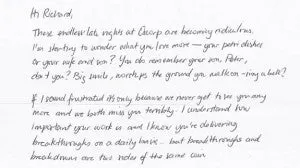 Hi Richard,
These endless late nights at Oscorp are becoming ridiculous.
I'm starting to wonder what you love more — your petri dishes
or your wife and son? You do remember your son, Peter,
don't you? Big smile, worships the ground you walk on – ring a bell?
If I sound frustrated it's only because we never get to see you any
more and we both miss you terribly. I understand how
important your work is and I know you're delivering
breakthroughs on a daily basis... but breakthroughs and
breakdowns are two sides of the same coin